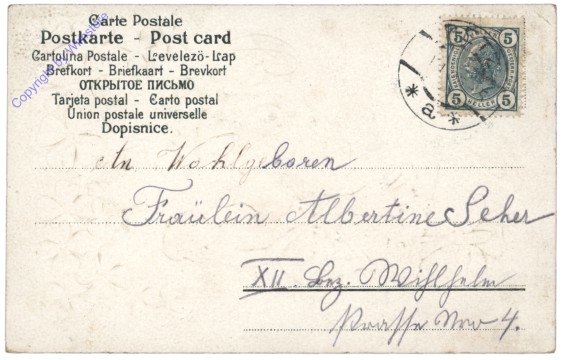 Carte Postale
Postkarte - Post card
Cartolina Postale - Levelezö-Lap
Brefkort - Briefkaart - Brevkort
ОТКРЫТОЕ ПИСЬМО
Tarjeta postal - Carto postal
Union postale universelle
Dopisnice.
5 5
5 HELLER 5
* a *
An Wohlgeboren
Fräulein Albertine Seher
XII. Bez. Wihlhelm
strasse Nro 4.
Copyright by